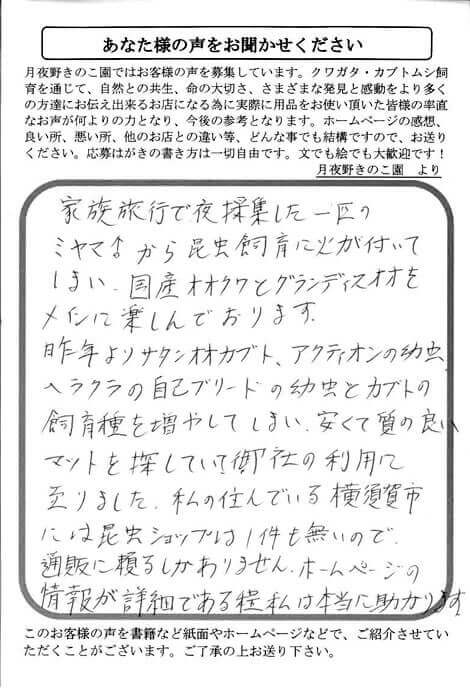 あなた様の声をお聞かせください
月夜野きのこ園ではお客様の声を募集しています。クワガタ・カブトムシ飼
育を通じて、自然との共生、命の大切さ、さまざまな発見と感動をより多く
の方達にお伝え出来るお店になる為に実際に用品をお使い頂いた皆様の率直
なお声が何よりの力となり、今後の参考となります。ホームページの感想、
良い所、悪い所、他のお店との違い等、どんな事でも結構ですので、お送り
ください。応募はがきの書き方は一切自由です。文でも絵でも大歓迎です！
月夜野きのこ園 より
家族旅行で夜採集した一匹の
ミヤマ♂から昆虫飼育に火が付いて
しまい、国産オオクワとグランディスオオを
メインに楽しんでおります。
昨年よりサタンオオカブト、アクティオンの幼虫、
ヘラクラの自己ブリードの幼虫とカブトの
飼育種を増やしてしまい、安くて質の良い
マットを探していて御社の利用に
至りました。私の住んでいる横須賀市
には昆虫ショップは1件も無いので、
通販に頼るしかありません。ホームページの
情報が詳細である程私は本当に助かります
このお客様の声を書籍など紙面やホームページなどで、ご紹介させてい
ただくことがございます。ご了承の上お送り下さい。